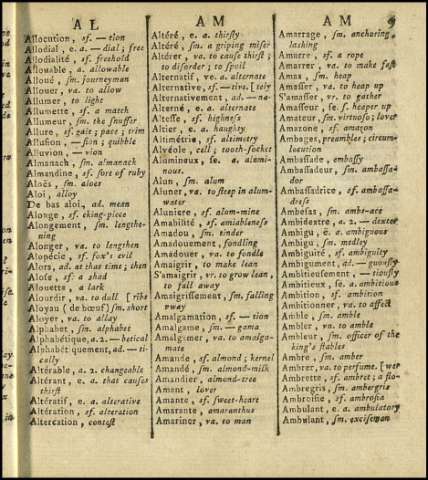 A L
Allocution, sf. — tion
Allodial, e. a. — dial; free
Allodialité, sf. freehold
Allouable, a. allowable
Alloué, sm. journeyman
Allouer, va. to allow
Allumer, to light
Allumette, sf. a match
Allumeur, sm. the snuffer
Allure, sf. gait; pace; trim
Allusion, — sion; quibble
Alluvion, — vion
Almanach, sm. almanack
Almandine, sf. sort of ruby
Aloès, sm. aloes
Aloi, alloy
De bas aloi, ad. mean
Alonge, sf. eking-piece
Alongement, sm. lengthe-
ning
Alonger, va. to lengthen
Alopécie, sf. fox's evil
Alors, ad. at that time; then
Alose, sf. a shad
Alouette, a lark
Alourdir, va. to dull [ribs
Aloyau (de bœuf) sm. short
Aloyer, va. to allay
Alphabet, sm. alphabet
Alphabétique, a. 2. — betical
Alphabétiquement, ad. — ti-
cally
Altérable, a. 2. changeable
Altérant, e. a that causes
thirst
Altératif, e. a. alterative
Altération, sf. alteration
Altercation, contest
A M
Altéré, e. a. thirsty
Altéré, sm. a griping miser
Altérer, va. to cause thirst;
to disorder; to spoil
Alternatif, ve. a. alternate
Alternative, sf. — tive. [tely
Alternativement, ad. — na-
Alterné, e. a. alternate
Altesse, sf. highness
Altier, e. a. haughty
Altimétrie, sf. altimetry
Alvéole, cell; tooth-socket
Alumineux, se. a. alumi-
nous
Alun, sm. alum
Aluner, va. to steep in alum-
water
Aluniere, sf. alum-mine
Amabilité, sf. amiableness
Amadou, sm. tinder
Amadouement, fondling
Amadouer, va. to fondle
Amaigrir, to make lean
S'amaigrir, vr. to grow lean,
to fall away
Amaigrissement, sm. falling
away
Amalgamation, sf. — tion
Amalgame, sm. — gama
Amalgamer, va. to amalga-
mate
Amande, sf. almond; kernel
Amandé, sm. almond-milk
Amandier, almond-tree
Amant, lover
Amante, sf. sweet-heart
Amarante, amaranthus
Amariner, va. to man
A M 9
Amarrage, sm. anchoring,
lashing
Amarre, sf. a rope
Amarrer, va. to make fast
Amas, sm. heap
Amasser, va. to heap up
S'amasser, vr. to gather
Amasseur, se. s. heaper up
Amateur, sm. virtuoso; lover
Amazone, sf. amazon
Ambages, preambles; circum-
locution
Ambassade, embassy
Ambassadeur, sm. ambassa-
dor
Ambassadrice, sf. ambassa-
dress
Ambesas, sm. ambs-ace
Ambidextre, a. 2. — dexter
Ambigu, ë. a. ambiguous
Ambigu, sm. medley
Ambiguité, sf. ambiguity
Ambigument, ad. — guously
Ambitieusement, — tiously
Ambitieux, se. a. ambitious
Ambition, sf. ambition
Ambitionner, va. to affect
Amble, sm. amble
Ambler, va. to amble
Ambleur, sm. officer of the
king's stables
Ambre, sm. amber
Ambrer, va. to perfume. [wer
Ambrette, sf. ambret; a flo-
Ambregris, sm. ambergris
Ambrosie, sf. ambrosia
Ambulant, e. a. ambulatory
Ambulant, sm. exciseman